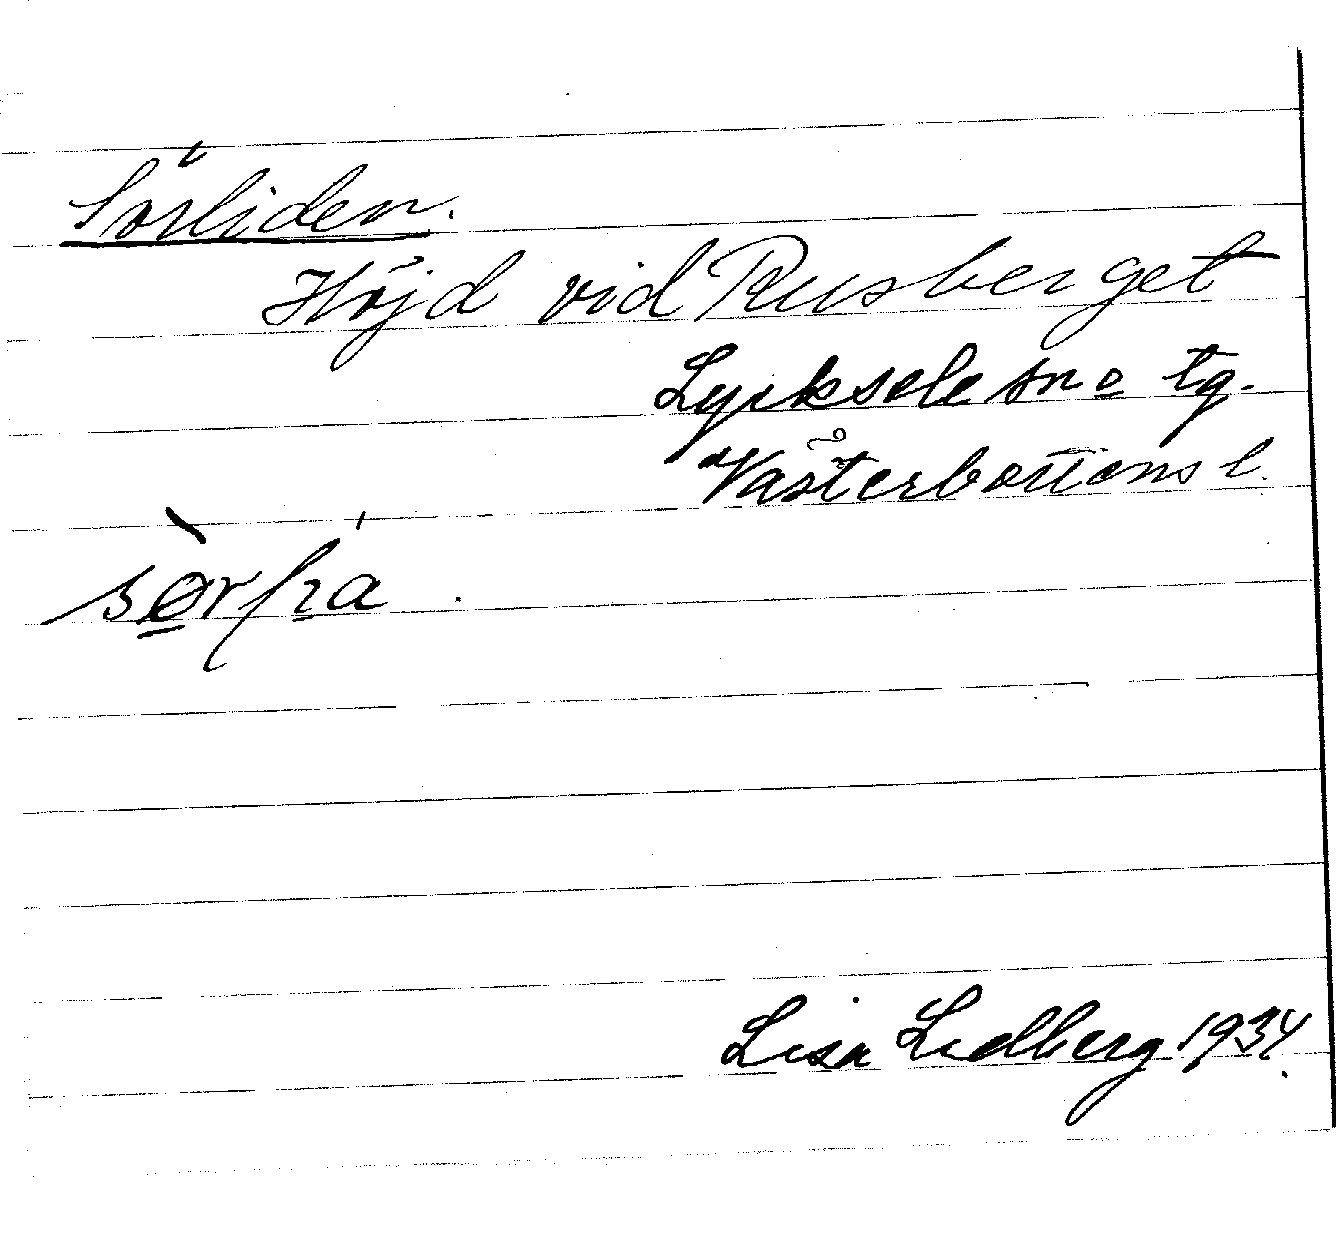 Sörliden.
Höjd vid Rusberget
Lycksele sn o tg.
Västerbottens l.
Lisa Lidberg 1934.